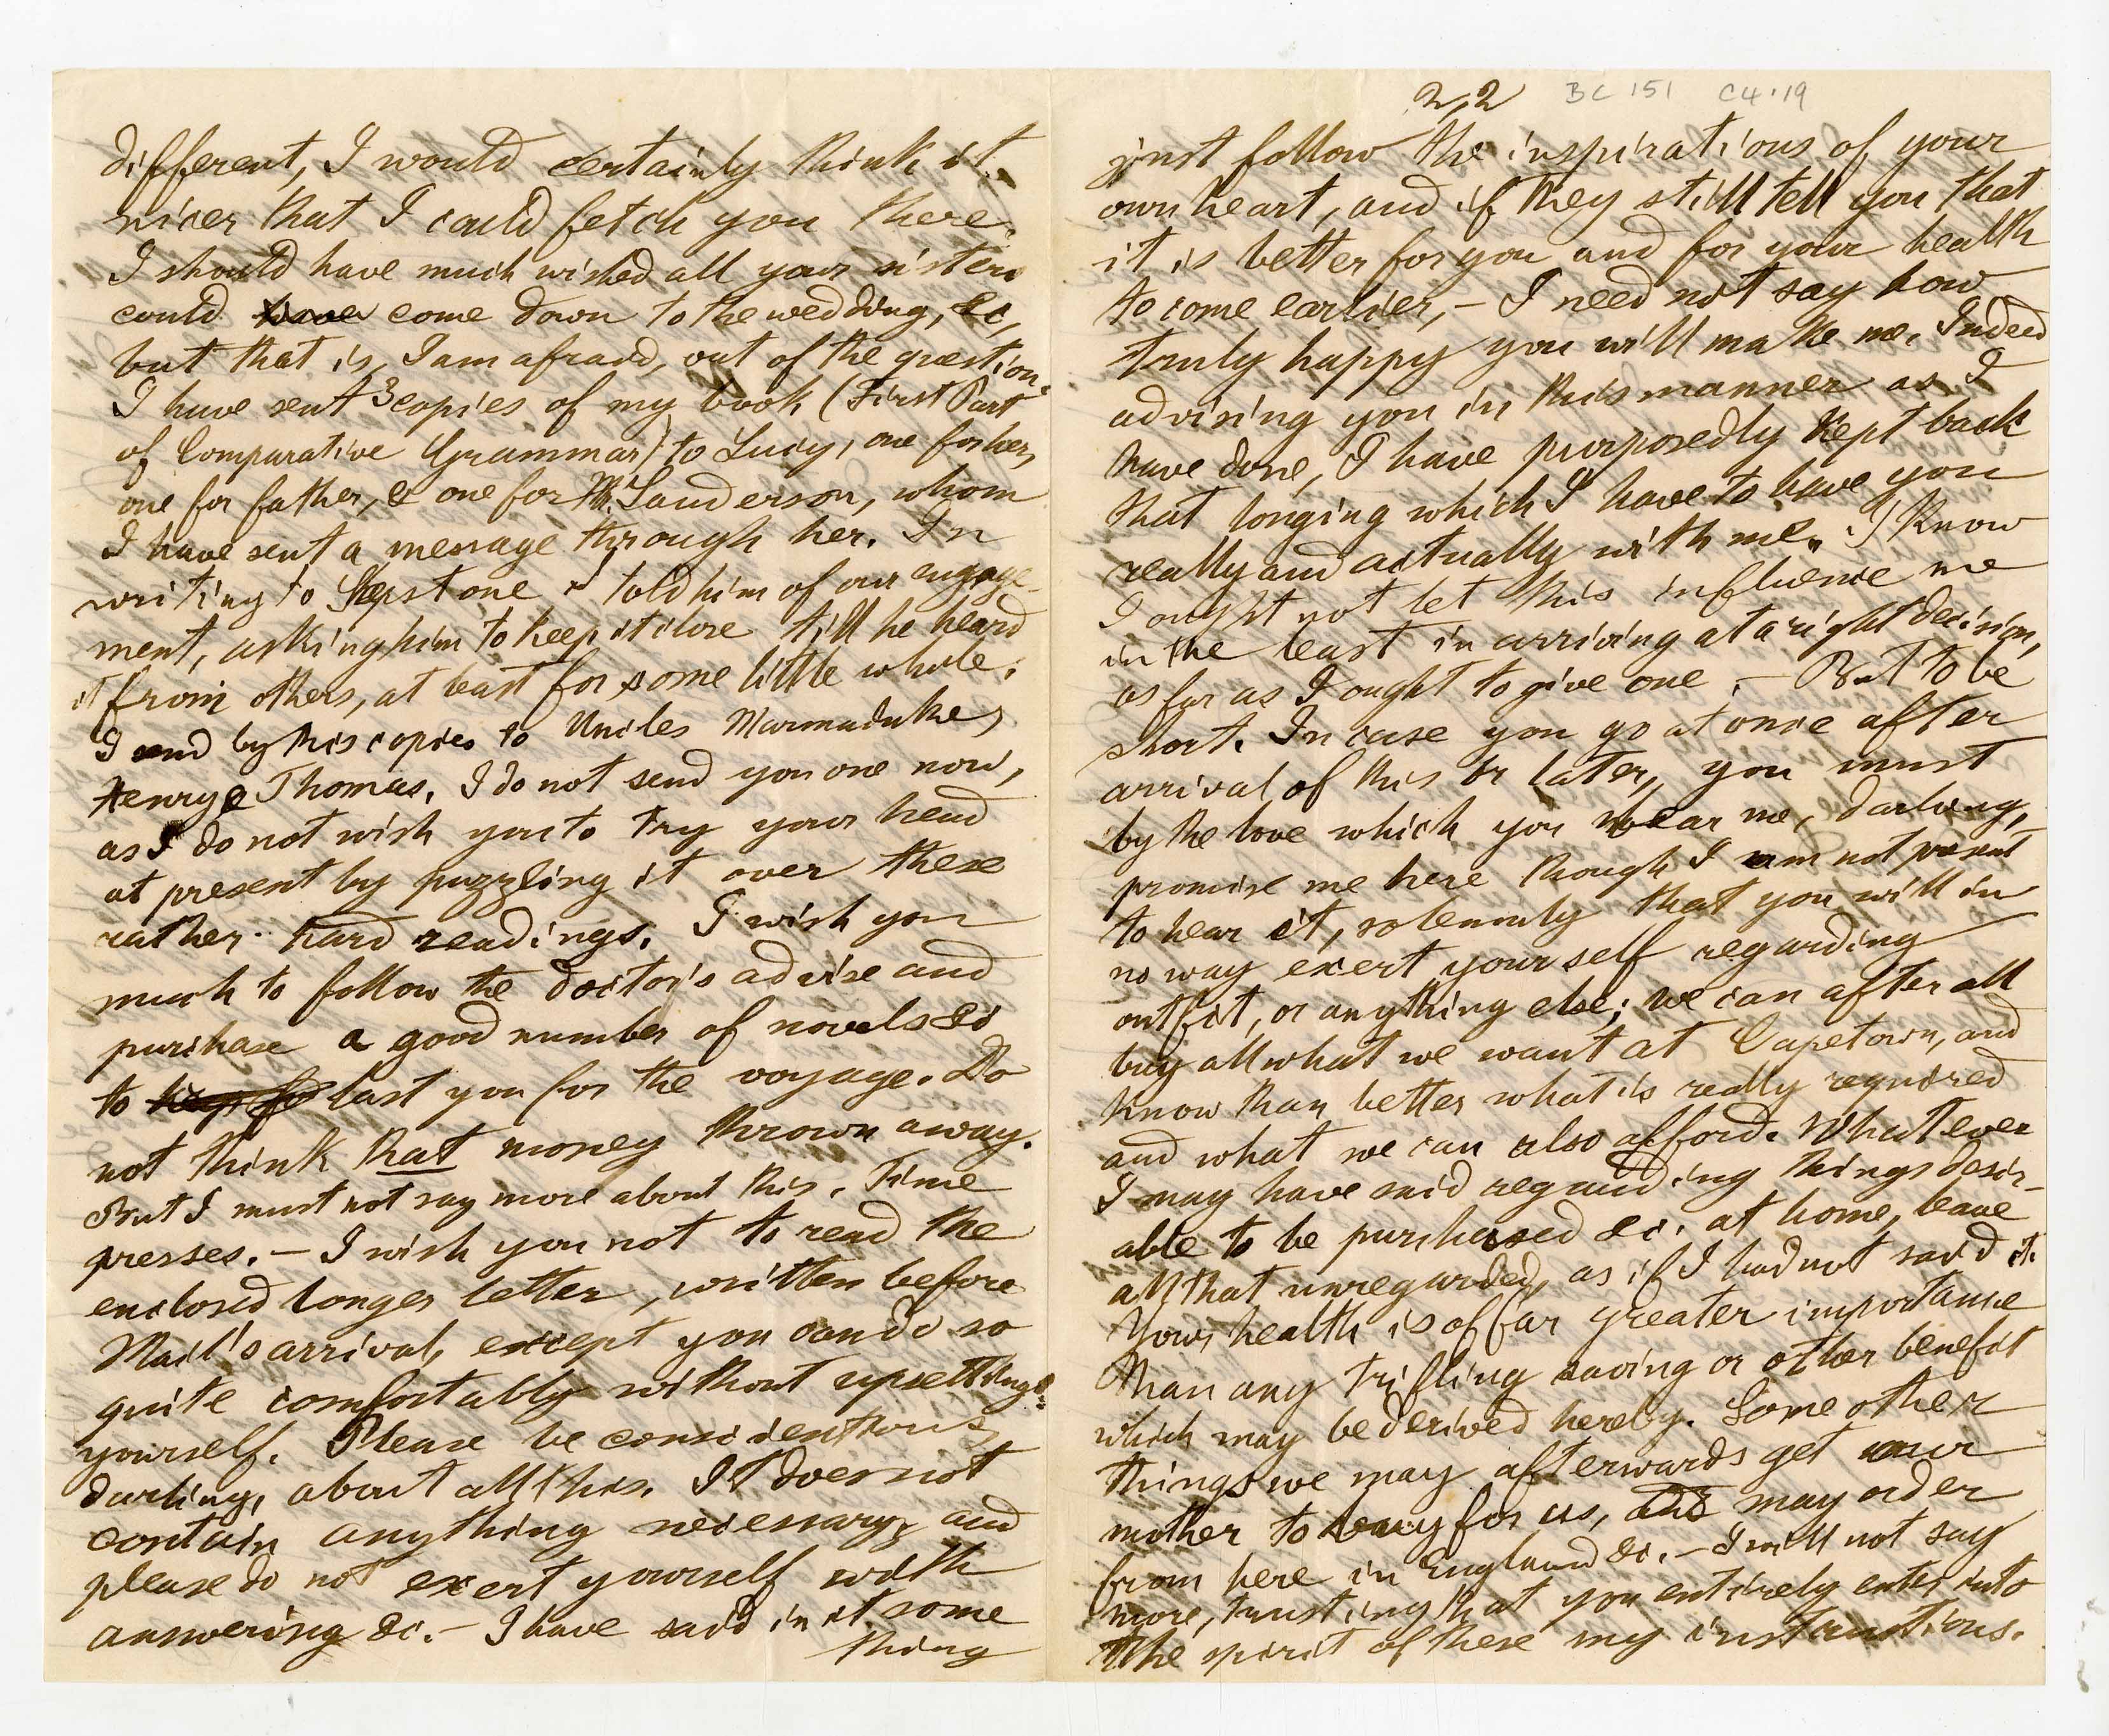 different, I would certainly think it
nicer that I could fetch you there.
I should have much wished all your sisters
could come down to the wedding, &c,
but that is, I am afraid, out of the question.
I have sent 3 copies of my book (First Part
of Comparative Grammar) to Lucy, one for her,
one for father, & one for Mr. Sanderson, whom
I have sent a message through her. In
writing to Shepstone I told him of our engage-
ment, asking him to keep it close till he heard
it from others, at least for some little while.
I send by this copies to Uncles Marmaduke,
Henry & Thomas. I do not send you one now,
as I do not wish you to try your head
at present by puzzling it over these
rather hard readings. I wish you
much to follow the doctor's advise and
purchase a good number of novels &c
to last you for the voyage. Do
not think that money thrown away.
But I must not say more about this. Time
presses. — I wish you not to read the
enclosed longer letter, written before
Mail's arrival, except you can do so
quite comfortably without upsetting
yourself. Please be conscientious,
darling, about all this. It does not
contain anything necessary, and
please do not exert yourself with
answering &c. — I have said in it some
thing
2,2 BC 151 C4.19
just follow the inspirations of your
own heart, and if they still tell you that
it is better for you and for your health
to come earlier, — I need not say how
truly happy you will make me. Indeed
advising you in this manner as I
have done, I have purposedly kept back
that longing which I have to have you
really and actually with me. I know
I ought not let this influence me
in the least in arriving at a right decision,
as far as I ought to give one. — But to be
short. In case you go at once after
arrival of this or later, you must
by the love which you bear me, darling,
promise me here though I am not present
to hear it, solemnly that you will in
no way exert yourself regarding
outfit, or anything else; we can after all
buy all what we want at Capetown, and
know than better what is really required
and what we can also afford. Whatever
I may have said regarding things desir-
able to be purchased &c. at home, leave
all that unregarded, as if I had not said it.
Your health is of far greater importance
than any trifling saving or other benefit
which may be derived hereby. Some other
things we may afterwards get our
mother to buy for us, and may order
from here in England &c. — I will not say
more, trusting that you entirely enter into
the spirit of these my instructions.